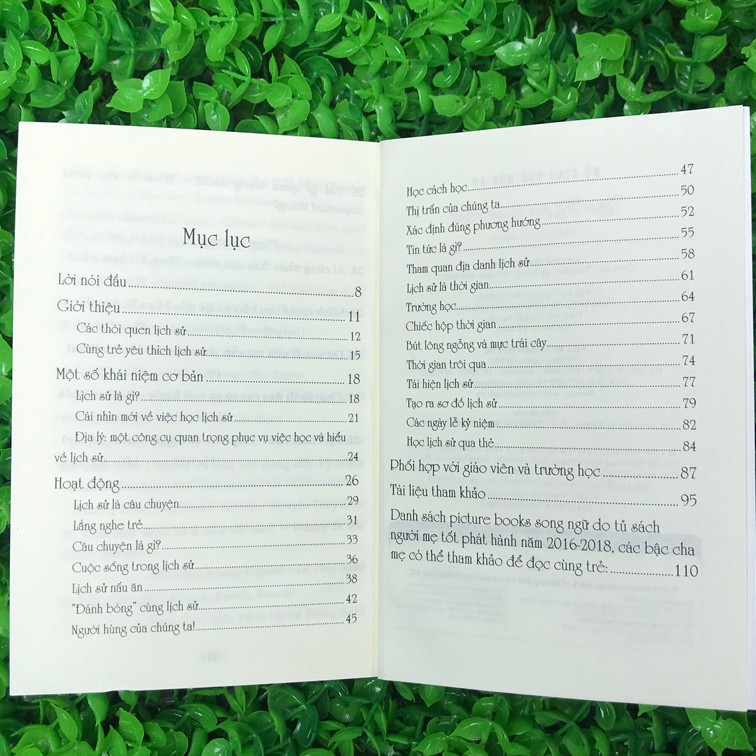 Mục lục
Lời nói đầu 8
Giới thiệu 11
Các thói quen lịch sử 12
Cùng trẻ yêu thích lịch sử 15
Một số khái niệm cơ bản 18
Lịch sử là gì? 18
Cái nhìn mới về việc học lịch sử 21
Địa lý: một công cụ quan trọng phục vụ việc học và hiểu
về lịch sử 24
Hoạt động 26
Lịch sử là câu chuyện 29
Lắng nghe trẻ 31
Câu chuyện là gì? 33
Cuộc sống trong lịch sử 36
Lịch sử nấu ăn 38
"Đánh bóng" cùng lịch sử 42
Người hùng của chúng ta! 45
Học cách học 47
Thị trấn của chúng ta 50
Xác định đúng phương hướng 52
Tin tức là gì? 55
Tham quan địa danh lịch sử 58
Lịch sử là thời gian 61
Trường học 64
Chiếc hộp thời gian 67
Bút lông ngỗng và mực trái cây 71
Thời gian trôi qua 74
Tái hiện lịch sử 77
Tạo ra sơ đồ lịch sử 79
Các ngày lễ kỷ niệm 82
Học lịch sử qua thẻ 84
Phối hợp với giáo viên và trường học 87
Tài liệu tham khảo 95
Danh sách picture books song ngữ do tủ sách
người mẹ tốt phát hành năm 2016-2018, các bậc cha
mẹ có thể tham khảo để đọc cùng trẻ: 110